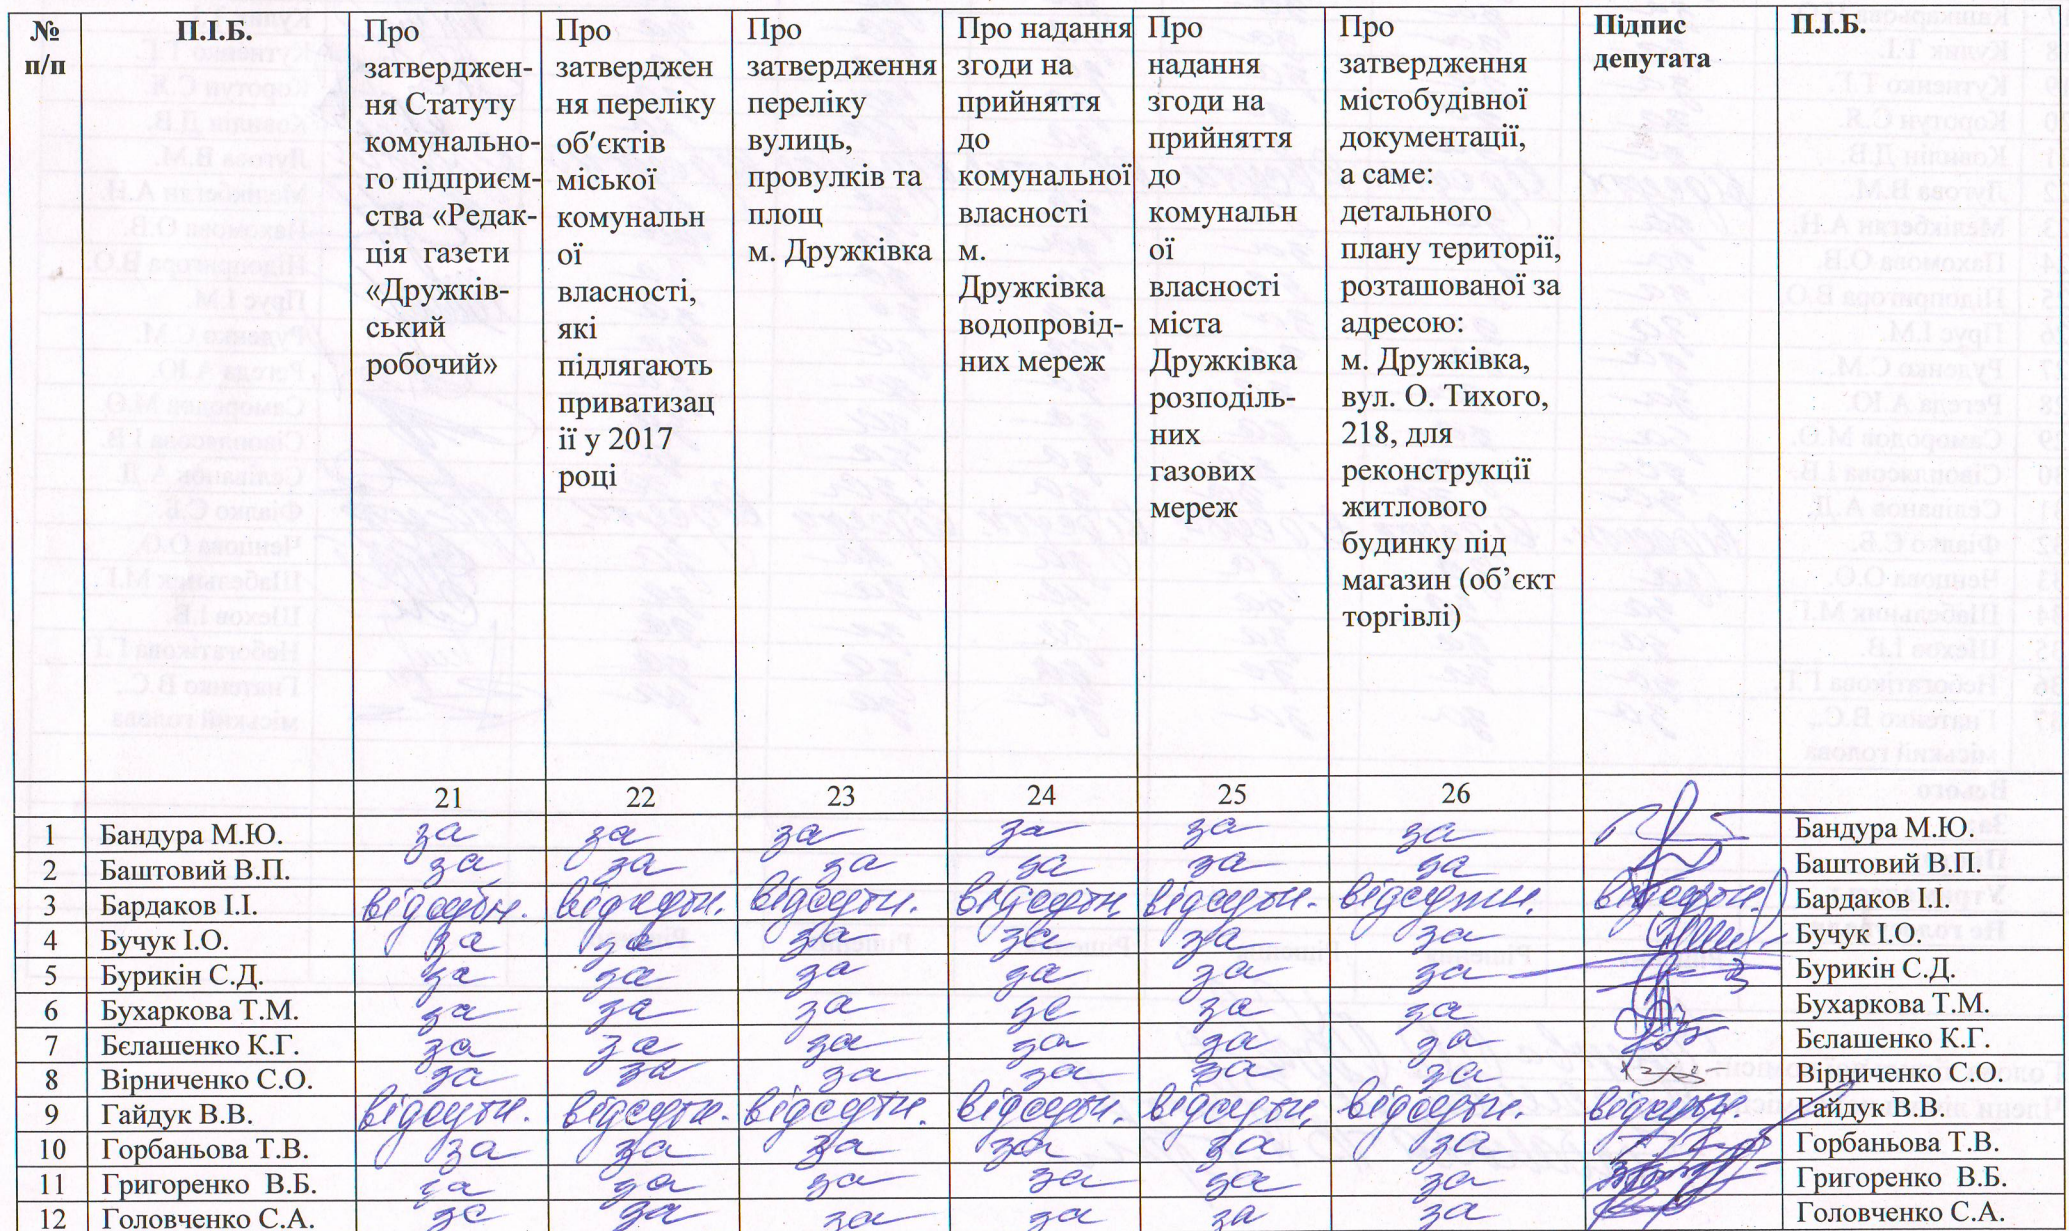 № п/п П.І.Б. Про затверджен-ня Статуту комунально-го підприєм-ства «Редак-ція газети «Дружків-ський робочий» Про затверджен ня переліку об′єктів міської комунальн ої власності, які підлягають приватизац ії у 2017 році Про затвердження переліку вулиць, провулків та площ м. Дружківка Про надання згоди на прийняття до комунальної власності м. Дружківка водопровід-них мереж Про надання згоди на прийняття до комунальн ої власності міста Дружківка розподіль-них газових мереж Про затвердження містобудівної документації, а саме: детального плану території, розташованої за адресою: м. Дружківка, вул. О. Тихого, 218, для реконструкції житлового будинку під магазин (об’єкт торгівлі) Підпис депутата П.І.Б.
21 22 23 24 25 26
1 Бандура М.Ю. за за за за за за Бандура М.Ю.
2 Баштовий В.П. за за за за за за Баштовий В.П.
3 Бардаков І.І. відсутн. відсутн. відсутн. відсутн. відсутн. відсутн. відсутн. Бардаков І.І.
4 Бучук І.О. за за за за за за Бучук І.О.
5 Бурикін С.Д. за за за за за за Бурикін С.Д.
6 Бухаркова Т.М. за за за за за за Бухаркова Т.М.
7 Бєлашенко К.Г. за за за за за за Бєлашенко К.Г.
8 Вірниченко С.О. за за за за за за Вірниченко С.О.
9 Гайдук В.В. відсутн. відсутн. відсутн. відсутн. відсутн. відсутн. відсутн. Гайдук В.В.
10 Горбаньова Т.В. за за за за за за Горбаньова Т.В.
11 Григоренко В.Б. за за за за за за Григоренко В.Б.
12 Головченко С.А. за за за за за за Головченко С.А.